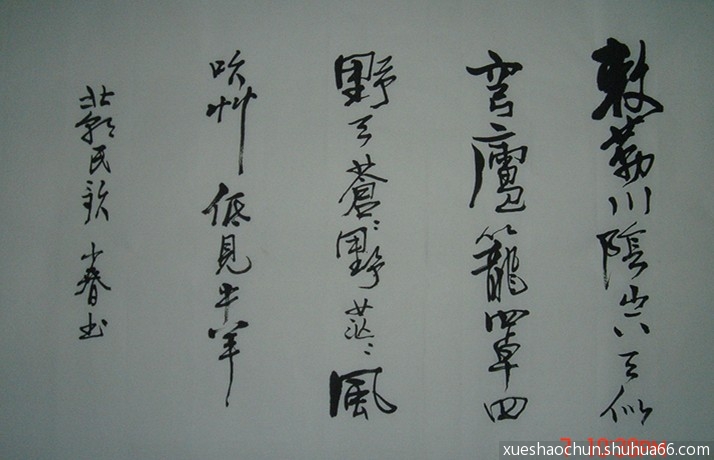 敕勒川陰山下天似
穹廬籠罩四
野天蒼々野茫々風
吹艸低見牛羊
北朝民歌 少春书
xueshaochun.shuhua66.com